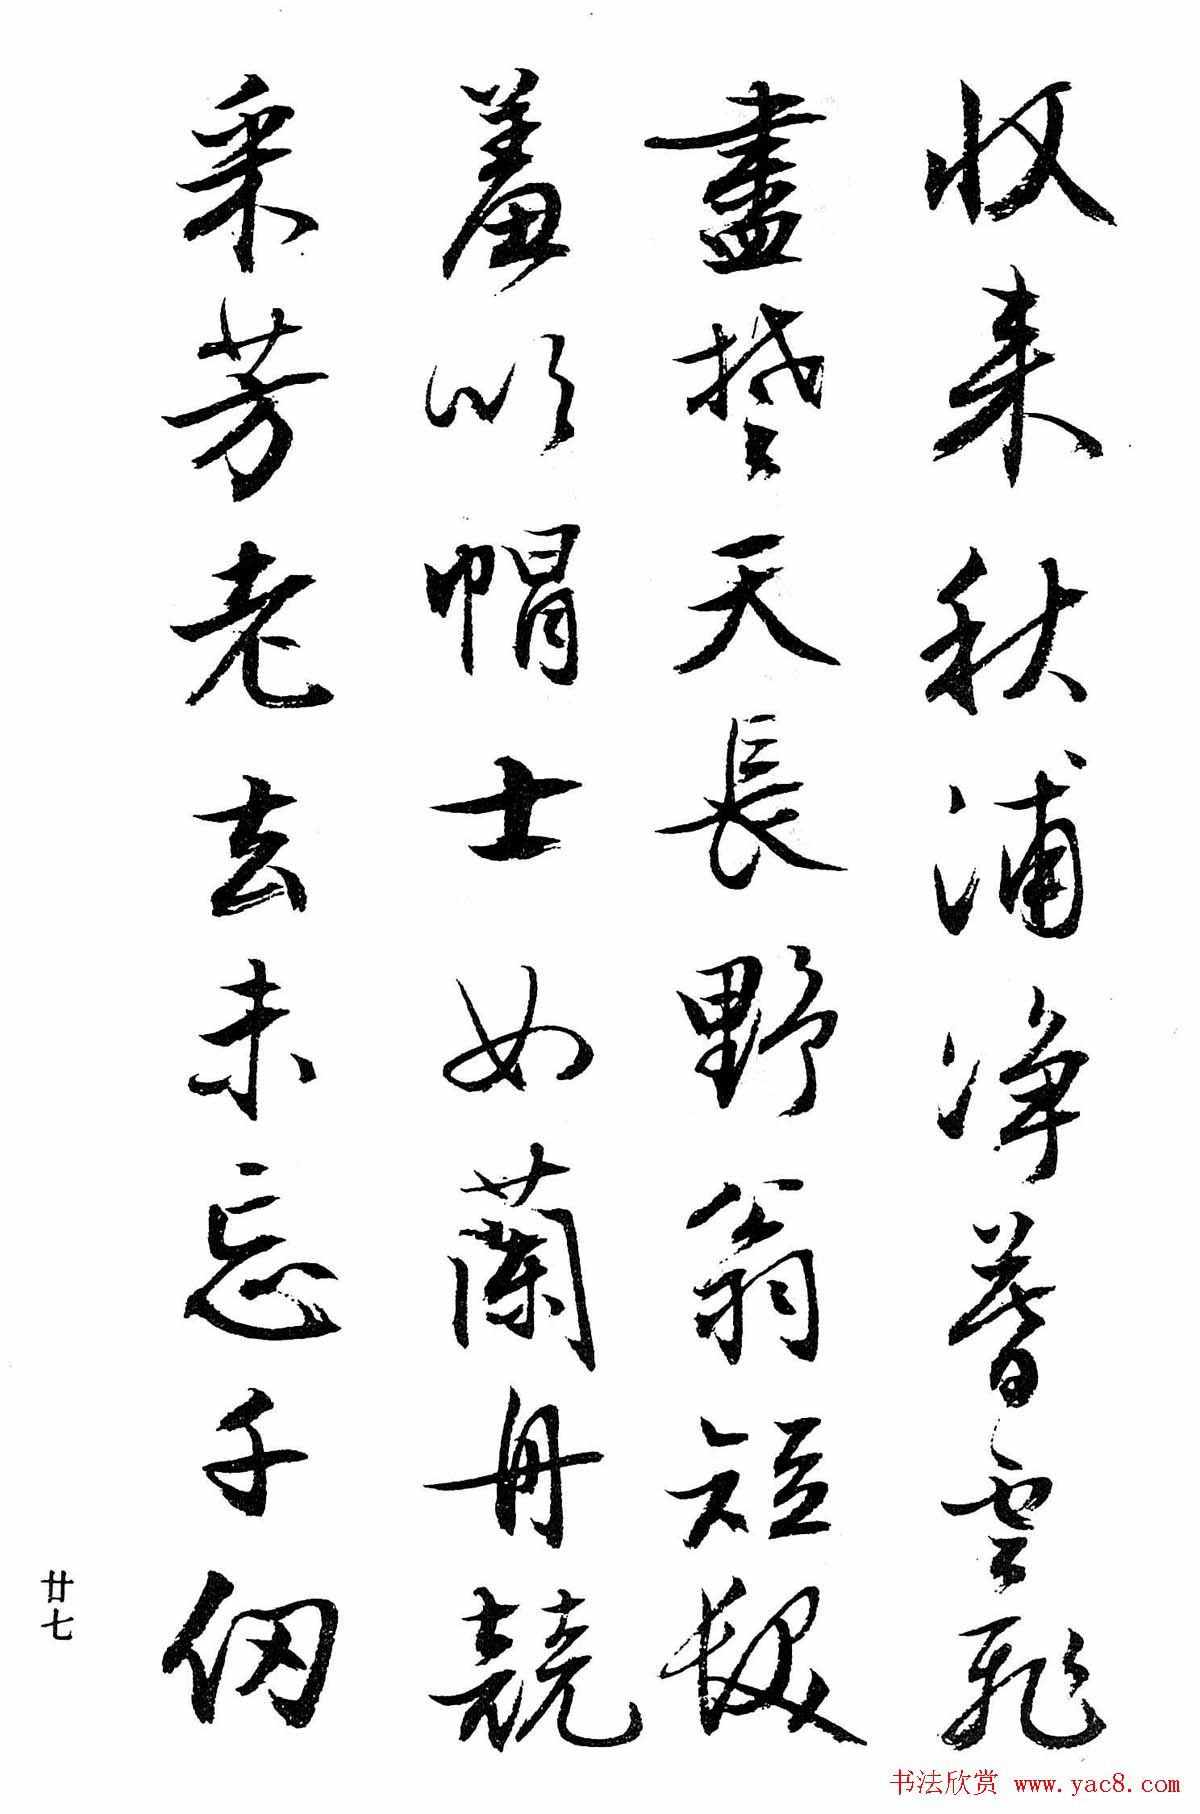 收来秋浦净暮雲飛
盡楚天長野翁短髮
羞吹帽士女蘭舟競
采芳老去未忘千仞
廿七
书法欣赏 www.yac8.com